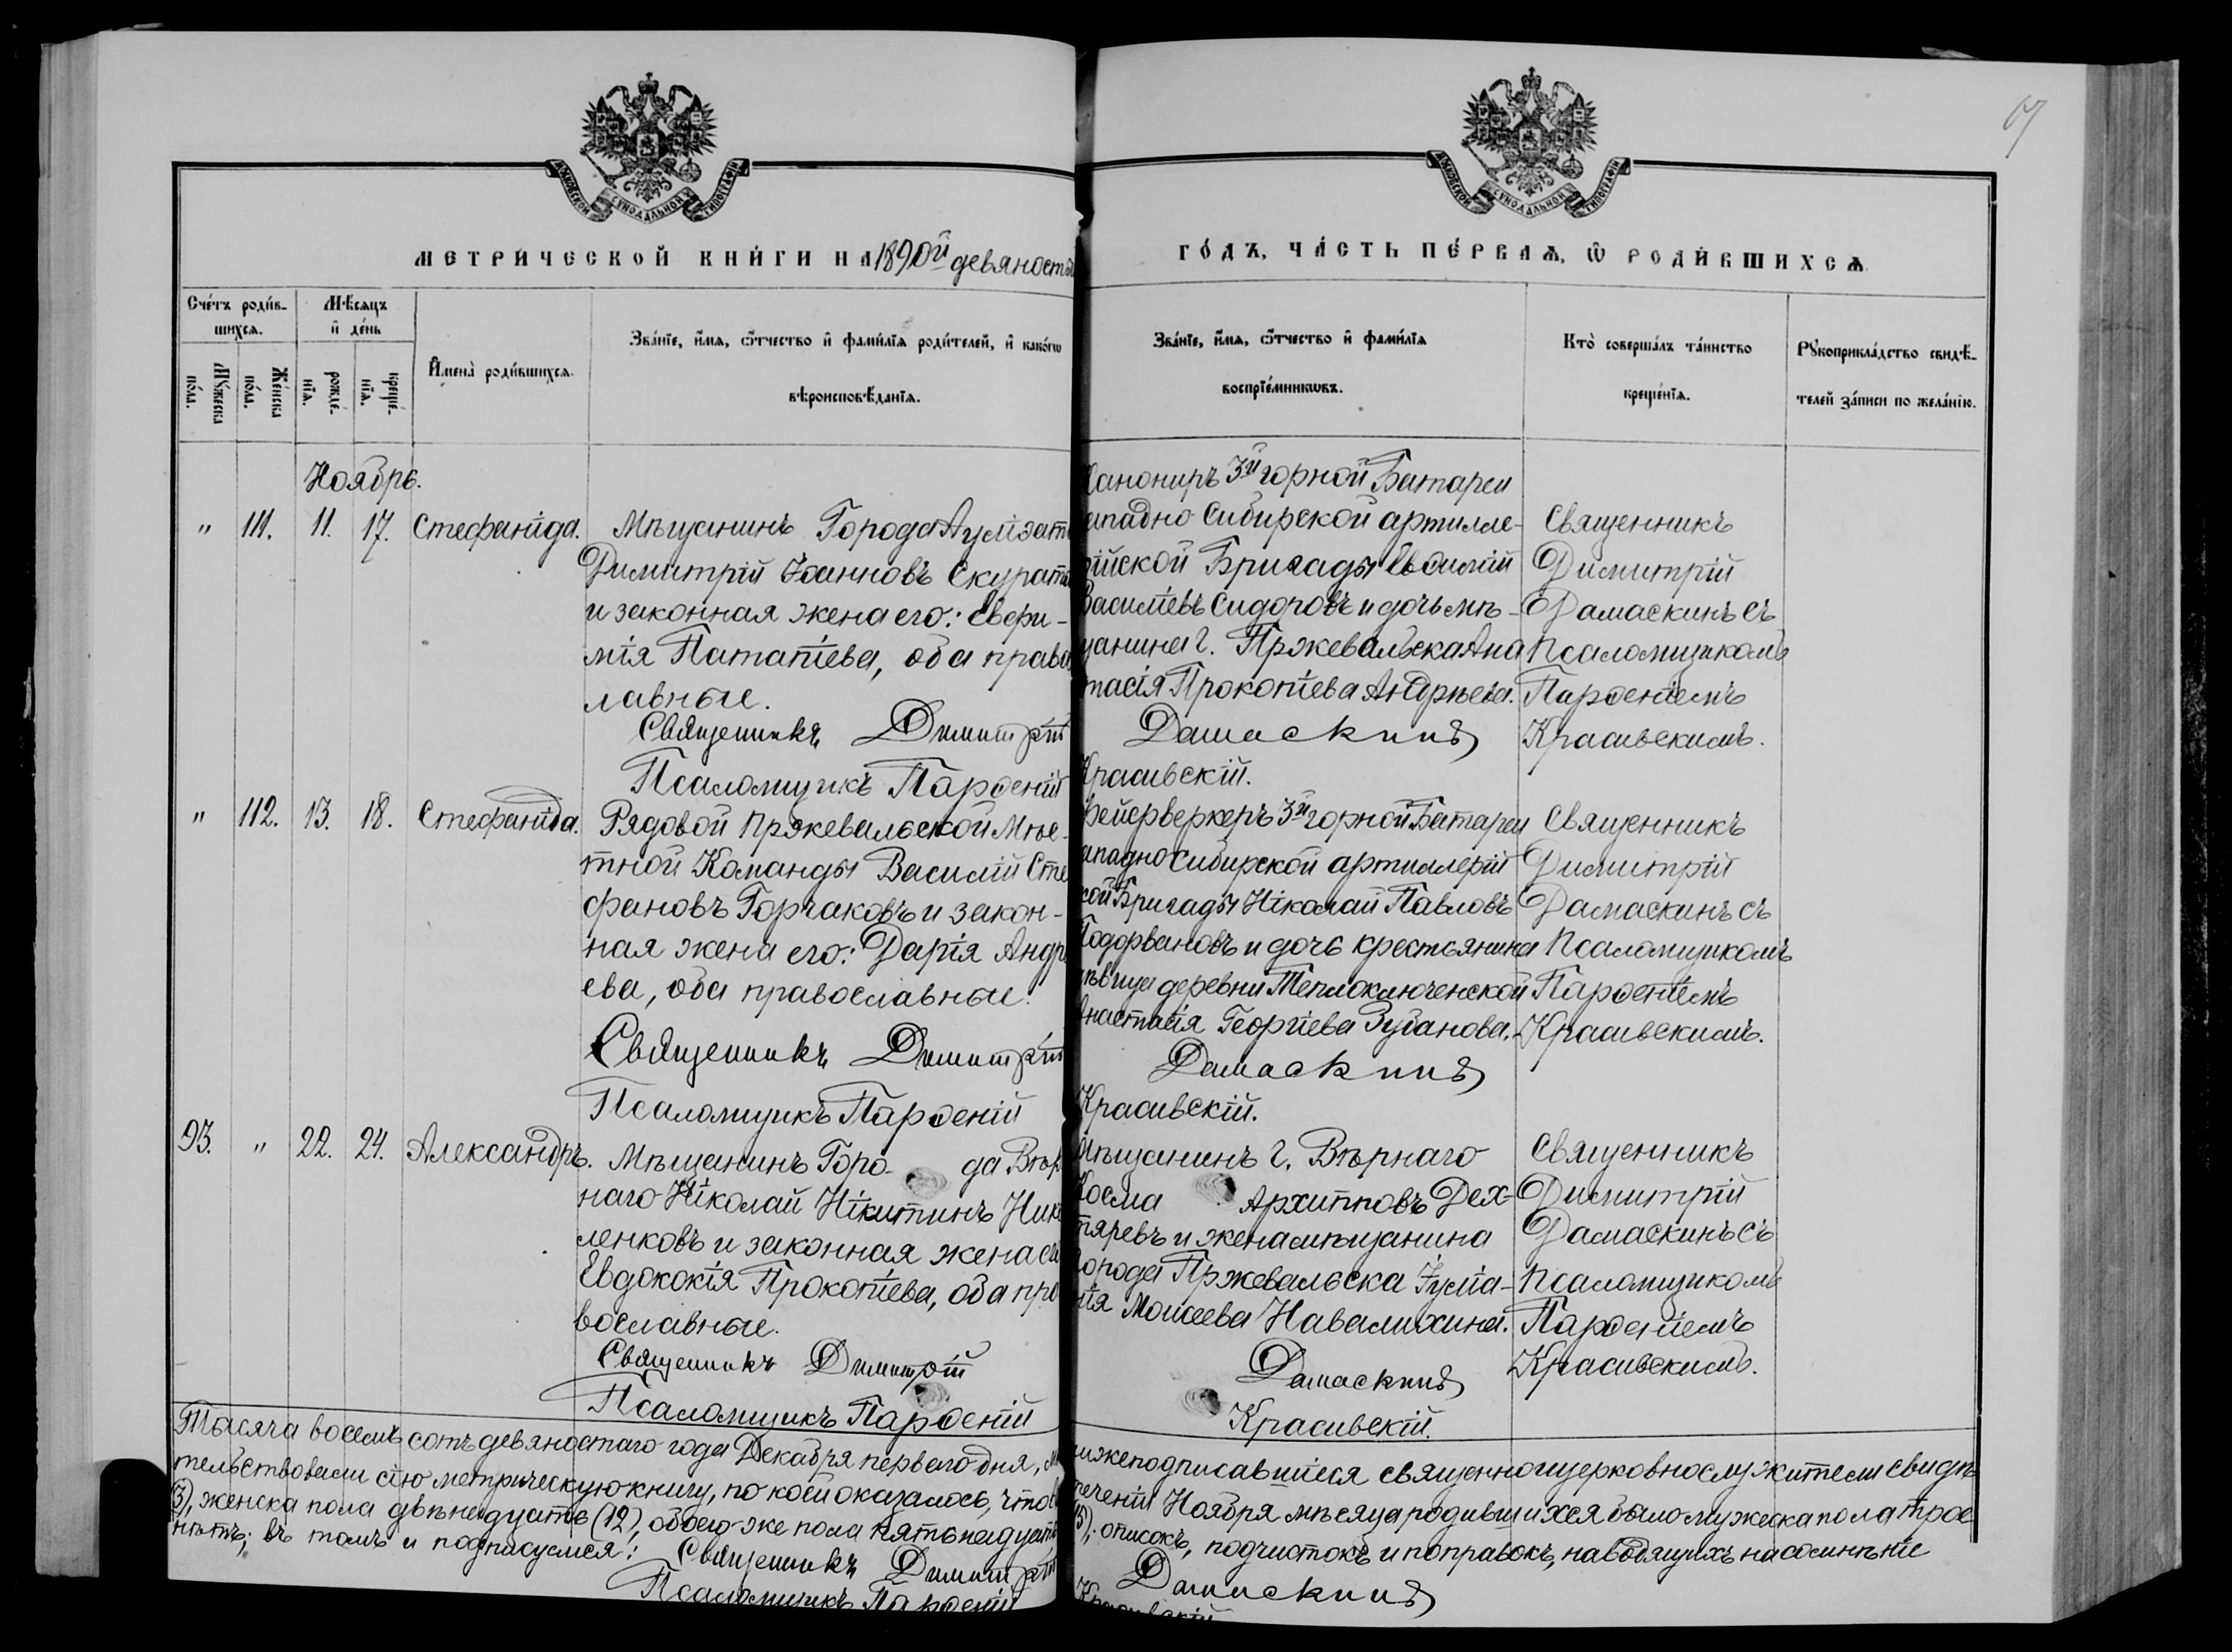 67
МОСКОВСКОЙ СѴНОДАЛЬНОЙ ТИПОГРАФІИ
МОСКОВСКОЙ СѴНОДАЛЬНОЙ ТИПОГРАФІИ
МЕТРИ́ЧЕСКОЙ КНИ́ГИ НА 1890й девяносты
ГО́ДЪ, ЧА́СТЬ ПЕ́РВАѦ, Ѡ҆ РОДИ́ВШИХСѦ
Сче́тъ роди́в-
шихсѧ.
Мꙋ́жеска по́ла.
Же́нска по́ла.
Мѣ́сѧцъ
и҆ де́нь
рожде́-
нїѧ.
креще́-
нїѧ.
И҆мена̀ роди́вшихсѧ.
Зва́нїе, и҆́мѧ, ѻ҆́тчество и҆ фами́лїѧ роди́телей, и҆ како́гѡ
вѣроисповѣ́данїѧ.
Зва́нїе, и҆́мѧ, ѻ҆́тчество и҆ фами́лїѧ
воспрїе́мникѡвъ.
Кто̀ соверша́лъ та́инство
креще́нїѧ.
Рꙋкоприкла́дство свидѣ́-
телей за́писи по жела́нїю.
Ноябрь.
" 111. 11. 17. Стефанида.
Мѣщанинъ Города Аулiэат
Димитрій Іоанновъ Скурато
и законная жена его: Евфи-
мія Патапіева, оба право
лавные.
Священникъ Димитрій
Псаломщикъ Парѳеній
Канониръ 3й горной Батареи
ападно Сибирской артилле-
рійской Бригады Евсилій
Василіевъ Сидоровъ и дочь мѣ-
щанина г. Пржевальска Ана
тасія Прокопіева Андрѣева.
Дамаскинъ
Красивскій.
Священникъ
Димитрій
Дамаскинъ съ
Псаломщикомъ
Парѳеніемъ
Красивскимъ.
" 112. 13. 18. Стефанида.
Рядовой Пржевальской Мѣс-
тной Команды Василій Сте
фановъ Горчаковъ и закон-
ная жена его: Дарія Андр
ева, оба православные.
Священникъ Димитрій
Псаломщикъ Парѳеній
Фейерверкеръ 3й горной Батареи
ападно Сибирской артиллерій
кой Бригады Ніколай Павловъ
Подорвановъ и дочь крестьянина
дѣвица деревни Теплоключенской
Анастасія Георгіева Зубанова.
Дамаскинъ
Красивскій.
Священникъ
Димитрій
Дамаскинъ съ
Псаломщикомъ
Парѳеніемъ
Красивскимъ.
93. " 22. 24. Александръ.
Мѣщанинъ Горо- да Вѣр
наго Ніколай Нікитинъ Нике
ленковъ и законная жена его
Евдококія Прокопіева, оба пра
вославные.
Священникъ Димитрій
Псаломщикъ Парѳеній
Мѣщанинъ г. Вѣрнаго
Косма Архипповъ Дех-
тяревъ и жена мѣщанина
города Пржевальска Іуліа-
нія Моисеева Навалихина.
Дамаскинъ
Красивскій.
Священникъ
Димитрій
Дамаскинъ съ
Псаломщикомъ
Парѳеніемъ
Красивскимъ.
Тысяча восемь сотъ девяностаго года Декабря перваго дня, м нижеподписавшіеся священноицерковнослужители свидѣ
тельствовали сію метрическую книгу, по коей оказалось, что в теченіи Ноября мѣсяца родившихся было мужеска пола трое
(3), женска пола двѣнадцать (12), обоего же пола пятьнадцать (15); описокъ, подчистокъ и поправокъ, наводящихъ на сомнѣніе
нѣтъ; въ томъ и подписуемся: Священникъ Димитрій Дамаскинъ
Псаломщикъ Парѳеній Красивскій